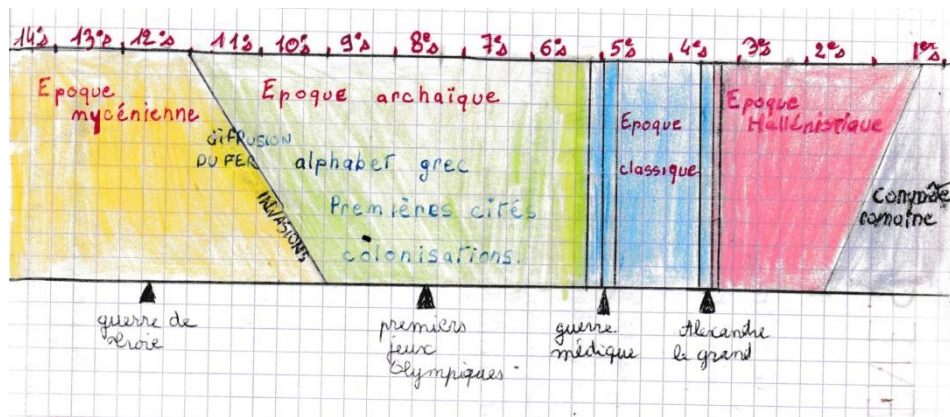 14es 13es 12es 11es 10es 9es 8es 7es 6es 5es 4es 3es 2es 1er
Epoque
mycénienne
Epoque archaïque
DIFFUSION
DU FER
INVASIONS
alphabet grec
Premières cités
colonisations.
Epoque
classique
Epoque
Hellénistique
conquête
romaine
guerre de
Troie
premiers
jeux
Olympiques
guerre
médique
Alexandre
le grand